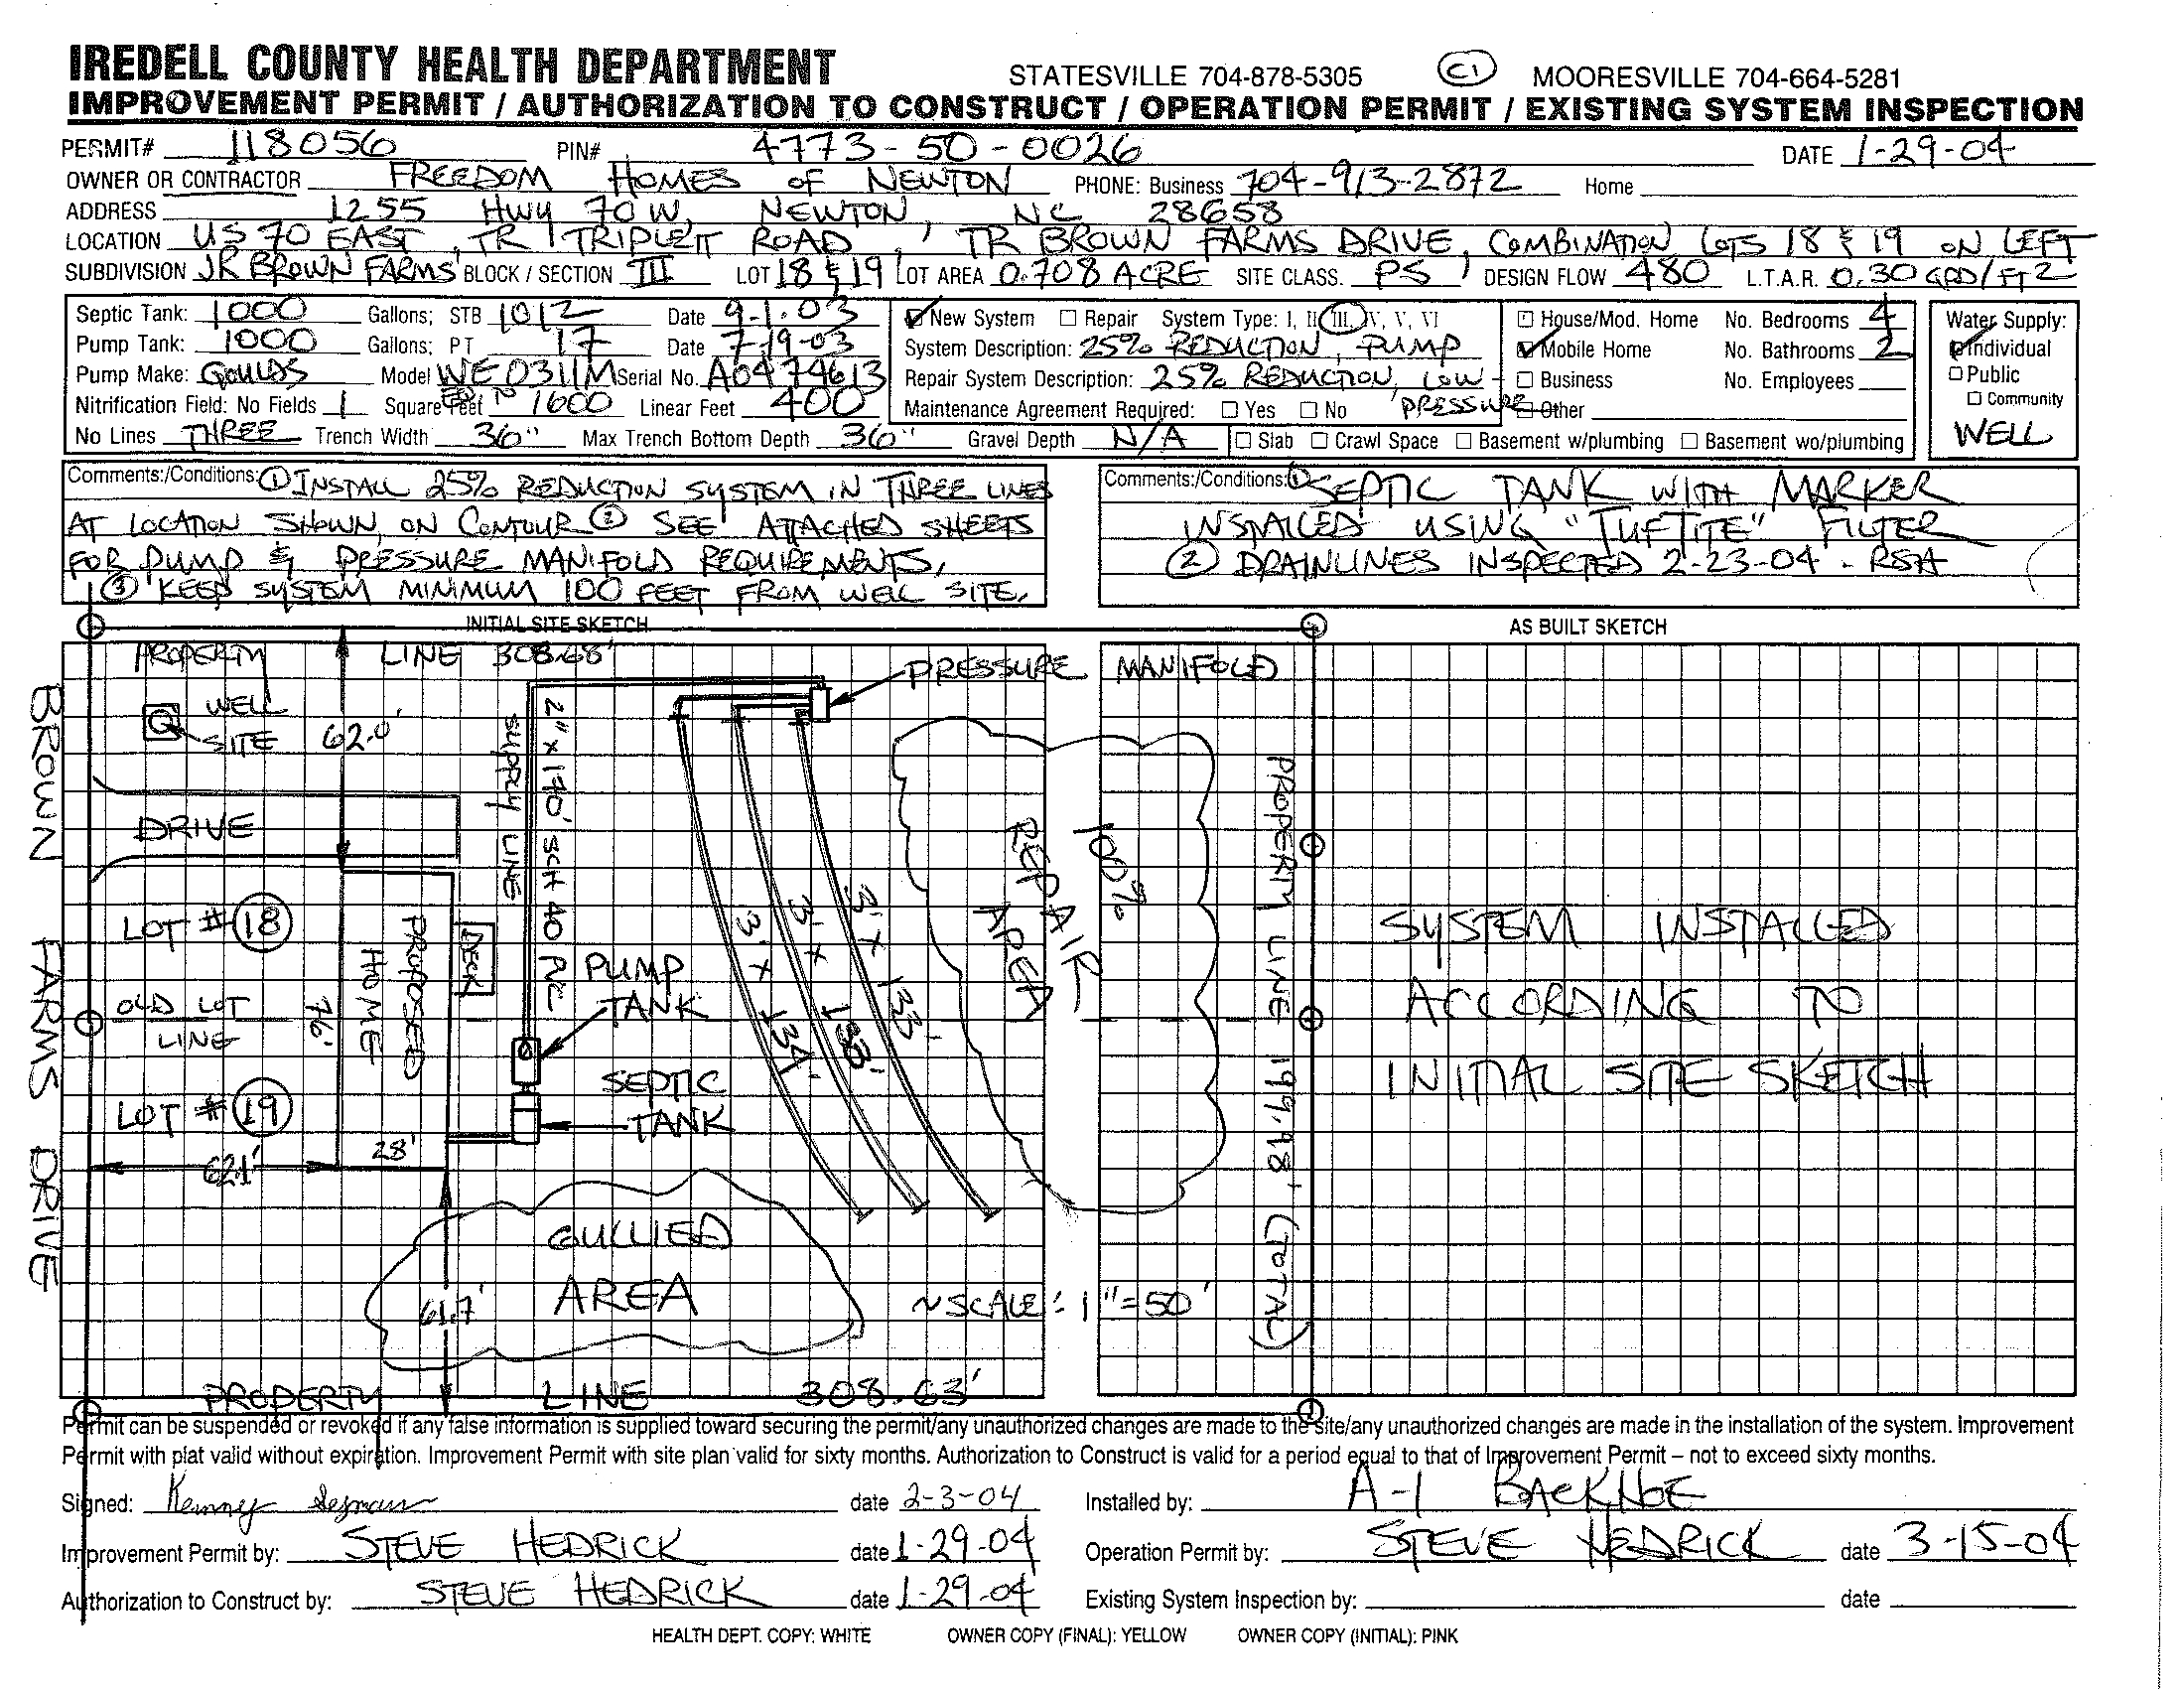 IREDELL COUNTY HEALTH DEPARTMENT STATESVILLE 704-878-5305 C1 MOORESVILLE 704-664-5281
IMPROVEMENT PERMIT / AUTHORIZATION TO CONSTRUCT / OPERATION PERMIT / EXISTING SYSTEM INSPECTION
PERMIT# 118056 PIN# 4773-50-0026 DATE 1-29-04
OWNER OR CONTRACTOR FREEDOM HOMES OF NEWTON PHONE: Business 704-913-2872 Home
ADDRESS 1255 HWY 70 W, NEWTON, NC 28658
LOCATION US 70 EAST, TR TRIPLETT ROAD, TR BROWN FARMS DRIVE, COMBINATION LOTS 18 & 19 ON LEFT
SUBDIVISION JR BROWN FARMS BLOCK / SECTION III LOT 18 & 19 LOT AREA 0.708 ACRE SITE CLASS. PS DESIGN FLOW 480 L.T.A.R. 0.30 GPD/FT2
Septic Tank: 1000 Gallons; STB 1012 Date 9-1-03
Pump Tank: 1000 Gallons; PT 17 Date 7-19-03
Pump Make: GOULDS Model WE0311M Serial No. A0474613
Nitrification Field: No Fields 1 Square Feet 1600 Linear Feet 400
No Lines THREE Trench Width 36" Max Trench Bottom Depth 36" Gravel Depth N/A
New System Repair System Type: I, II, III, IV, V, VI
System Description: 25% REDUCTION, PUMP
Repair System Description: 25% REDUCTION, LOW-
Maintenance Agreement Required: Yes No PRESSURE
Slab Crawl Space Basement w/plumbing Basement wo/plumbing
House/Mod. Home No. Bedrooms 4
Mobile Home No. Bathrooms 2
Business No. Employees
Other
Water Supply:
Individual
Public
Community
WELL
Comments:/Conditions: ① INSTALL 25% REDUCTION SYSTEM IN THREE LINES
AT LOCATION SHOWN, ON CONTOUR ② SEE ATTACHED SHEETS
FOR PUMP & PRESSURE MANIFOLD REQUIREMENTS,
③ KEEP SYSTEM MINIMUM 100 FEET FROM WELL SITE.
Comments:/Conditions: ① SEPTIC TANK WITH MARKER
INSTALLED USING "TUFTITE" FILTER
② DRAINLINES INSPECTED 2-23-04 - RSH
INITIAL SITE SKETCH
AS BUILT SKETCH
PROPERTY LINE 308.68'
PRESSURE MANIFOLD
WELL
SITE
62.0'
2" x 170' SCH 40 PVC
SUPPLY LINE
DRIVE
BROWN FARMS DRIVE
LOT # 18
PROPOSED
HOME
DECK
76'
PUMP
TANK
3' x 134'
3' x 133'
3' x 133'
100%
REPAIR
AREA
PROPERTY LINE 199.98' (TOTAL)
OLD LOT
LINE
SEPTIC
TANK
LOT # 19
62.1'
28'
GULLIED
AREA
61.7'
~SCALE: 1"=50'
PROPERTY LINE 308.63'
SYSTEM INSTALLED
ACCORDING TO
INITIAL SITE SKETCH
Permit can be suspended or revoked if any false information is supplied toward securing the permit/any unauthorized changes are made to the site/any unauthorized changes are made in the installation of the system. Improvement
Permit with plat valid without expiration. Improvement Permit with site plan valid for sixty months. Authorization to Construct is valid for a period equal to that of Improvement Permit – not to exceed sixty months.
Signed: Kenney date 2-3-04 Installed by: A-1 BACKHOE
Improvement Permit by: STEVE HEDRICK date 1-29-04 Operation Permit by: STEVE HEDRICK date 3-15-04
Authorization to Construct by: STEVE HEDRICK date 1-29-04 Existing System Inspection by: date
HEALTH DEPT. COPY: WHITE OWNER COPY (FINAL): YELLOW OWNER COPY (INITIAL): PINK